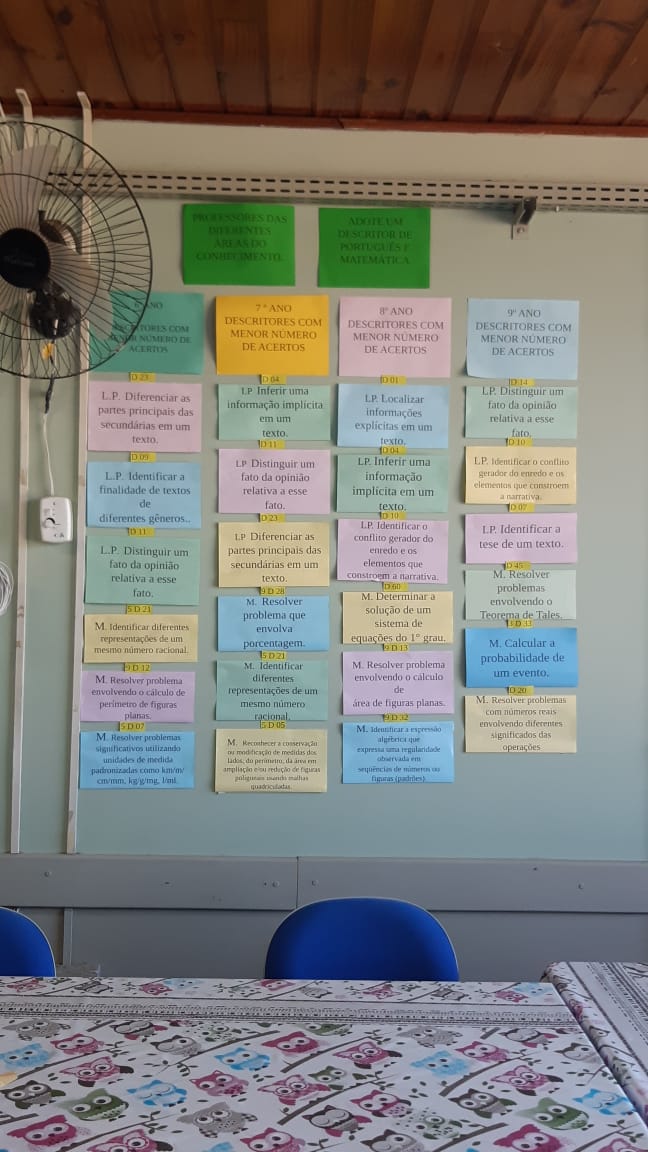 PROFESSORES DAS
DIFERENTES
ÁREAS DO
CONHECIMENTO.
ADOTE UM
DESCRITOR DE
PORTUGUÊS E
MATEMÁTICA
6º ANO
DESCRITORES COM
MENOR NÚMERO DE
ACERTOS
D 23
L.P. Diferenciar as
partes principais das
secundárias em um
texto.
D 09
L.P. Identificar a
finalidade de textos
de
diferentes gêneros..
D 11
L.P. Distinguir um
fato da opinião
relativa a esse
fato.
5 D 21
M. Identificar diferentes
representações de um
mesmo número racional.
9 D 12
M. Resolver problema
envolvendo o cálculo de
perímetro de figuras
planas.
5 D 07
M. Resolver problemas
significativos utilizando
unidades de medida
padronizadas como km/m/
cm/mm, kg/g/mg, l/ml.
7 ª ANO
DESCRITORES COM
MENOR NÚMERO
DE ACERTOS
D 04
LP Inferir uma
informação implícita
em um
texto.
D 11
LP Distinguir um
fato da opinião
relativa a esse
fato.
D 23
LP Diferenciar as
partes principais das
secundárias em um
texto.
9 D 28
M. Resolver
problema que
envolva
porcentagem.
5 D 21
M. Identificar
diferentes
representações de um
mesmo número
racional.
5 D 05
M. Reconhecer a conservação
ou modificação de medidas dos
lados, do perímetro, da área em
ampliação e/ou redução de figuras
poligonais usando malhas
quadriculadas.
8º ANO
DESCRITORES COM
MENOR NÚMERO
DE ACERTOS
D 01
LP. Localizar
informações
explícitas em um
texto.
D 04
LP. Inferir uma
informação
implícita em um
texto.
D 10
LP. Identificar o
conflito gerador do
enredo e os
elementos que
constroem a narrativa.
D 60
M. Determinar a
solução de um
sistema de
equações do 1º grau.
9 D 13
M. Resolver problema
envolvendo o cálculo
de
área de figuras planas.
9 D 32
M. Identificar a expressão
algébrica que
expressa uma regularidade
observada em
sequências de números ou
figuras (padrões).
9º ANO
DESCRITORES COM
MENOR NÚMERO
DE ACERTOS
D 14
LP. Distinguir um
fato da opinião
relativa a esse
fato.
D 10
LP. Identificar o conflito
gerador do enredo e os
elementos que constroem
a narrativa.
D 07
LP. Identificar a
tese de um texto.
D 45
M. Resolver
problemas
envolvendo o
Teorema de Tales.
3 D 33
M. Calcular a
probabilidade de
um evento.
D 20
M. Resolver problemas
com números reais
envolvendo diferentes
significados das
operações